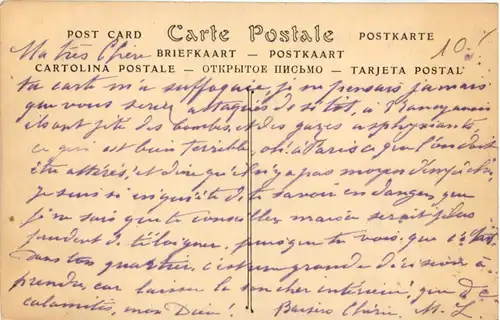 POST CARD Carte Postale POSTKARTE
BRIEFKAART — POSTKAART
CARTOLINA POSTALE — ОТКРЫТОЕ ПИСЬМО — TARJETA POSTAL
10
Ma très Chère
ta carte m'a suffoquée, je ne pensais jamais
que vous seriez attaqués de si tot, à
ils ont jeté des bombes, et des gazes asphyxiants,
ce qui est bien terrible, oh! à Paris ce que l'on doit
être attérés, et dire qu'il n'y a pas moyen d'empêcher,
je suis si inquiète de te savoir en danger, que
je ne sais que te conseiller, marie serait plus
prudent de t'éloigner, puisque tu vois que c'était
dans ton quartier, c'est une grande décision à
prendre, car laisser son cher intérieur, que de
calamités, mon Dieu! Baisers Chérie M. L.